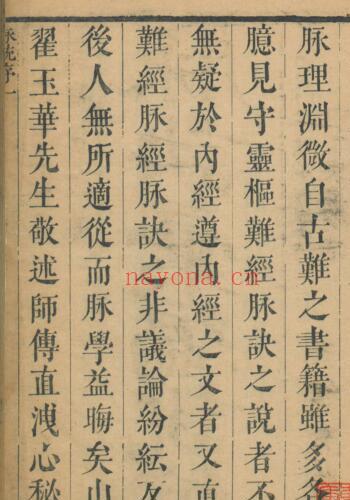 脉理淵微自古難之書籍雖多各
臆見守靈樞難經脉訣之說者不
無疑於內經遵內經之文者又直
難經脉經脉訣之非議論紛紜友
後人無所適從而脉學益晦矣山
翟玉華先生敬述師傳直洩心秘
脉統序一
nayona.cn